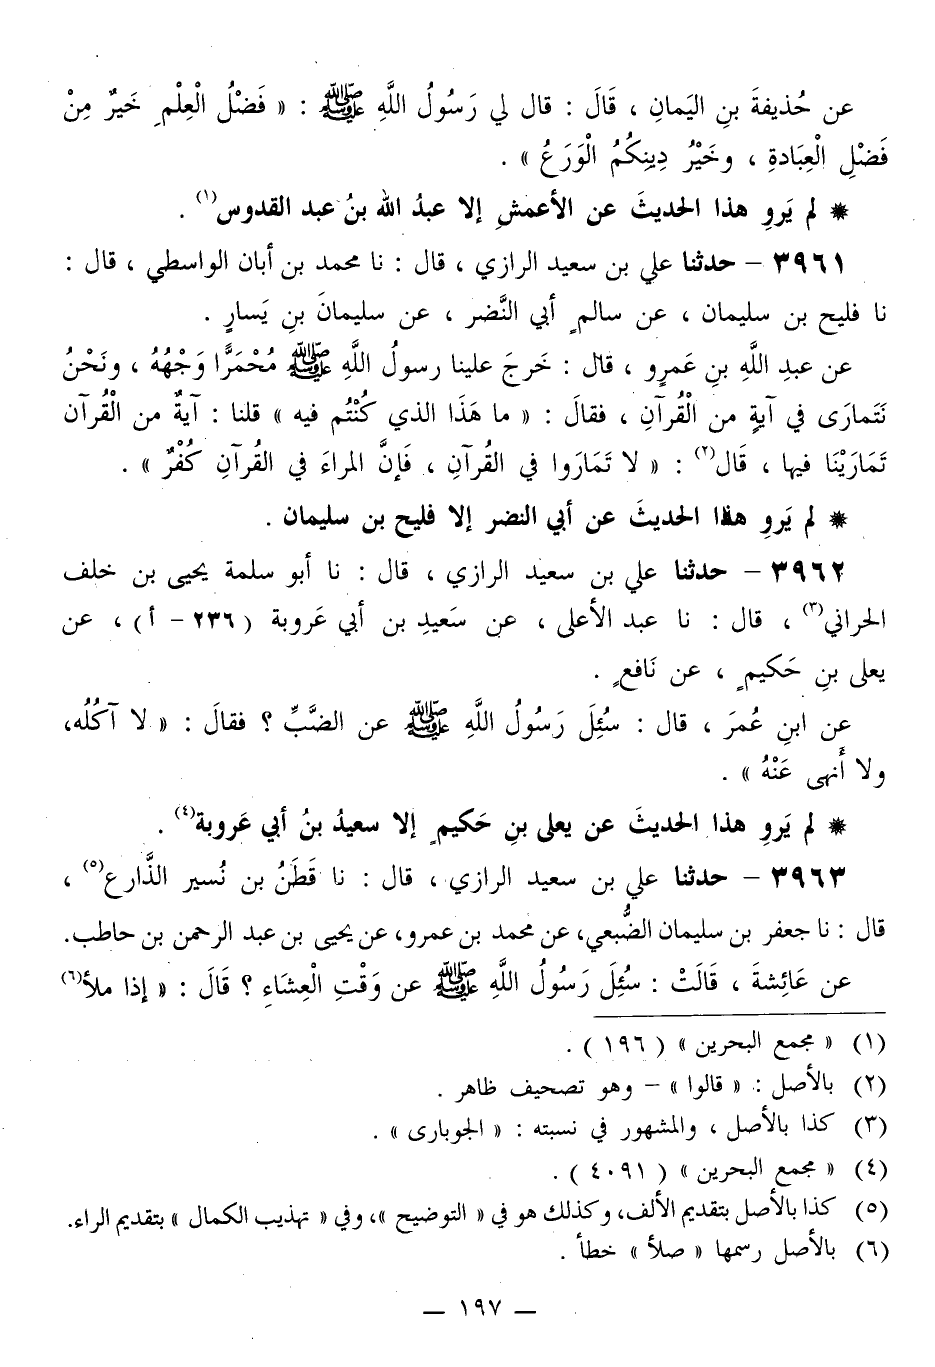 عن حُذيفةَ بنِ اليَمانِ ، قَالَ : قال لي رَسُولُ اللَّهِ ﷺ : « فَضْلُ الْعِلْمِ خَيرٌ مِنْ
فَضْلِ الْعِبَادةِ ، وخَيْرُ دِينِكُمُ الْوَرَعُ » .
* لم يَروِ هذا الحديثَ عن الأعمشِ إلا عبدُ الله بنُ عبد القدوس(١) .
٣٩٦١ – حدثنا علي بن سعيد الرازي ، قال : نا محمد بن أبان الواسطي ، قال :
نا فليح بن سليمان ، عن سالمٍ أبي النَّضر ، عن سليمانَ بنِ يَسارٍ .
عن عبدِ اللَّهِ بنِ عَمرٍو ، قال : خَرجَ علينا رسولُ اللَّهِ ﷺ مُحْمَرًّا وَجْهُهُ ، ونَحْنُ
نَتَمارَى في آيةٍ من الْقُرآنِ ، فقالَ : « ما هَذَا الذي كُنْتُم فيه » قلنا : آيةٌ من الْقُرآن
تَمَارَيْنَا فيها ، قَال(٢) : « لا تَمَارَوا في القُرآنِ ، فَإنَّ المراءَ في القُرآنِ كُفْرٌ » .
* لم يَروِ هذا الحديثَ عن أبي النضر إلا فليح بن سليمان .
٣٩٦٢ – حدثنا علي بن سعيد الرازي ، قال : نا أبو سلمة يحيى بن خلف
الحراني(٣) ، قال : نا عبد الأعلى ، عن سَعيدِ بن أبي عَروبة ( ٢٣٦ – أ ) ، عن
يعلى بنِ حَكيمٍ ، عن نَافعٍ .
عن ابنِ عُمرَ ، قال : سُئِلَ رَسُولُ اللَّهِ ﷺ عن الضَّبِّ ؟ فقالَ : « لا آكُلُه،
ولا أَنهى عَنْهُ » .
* لم يَروِ هذا الحديثَ عن يعلى بنِ حَكيمٍ إلا سعيدُ بنُ أبي عَروبة(٤) .
٣٩٦٣ – حدثنا علي بن سعيد الرازي ، قال : نا قَطَنُ بن نُسير الذَّارع(٥) ،
قال : نا جعفر بن سليمان الضُّبعي، عن محمد بن عمرو، عن يحيى بن عبد الرحمن بن حاطب.
عن عَائِشةَ ، قَالَتْ : سُئِلَ رَسُولُ اللَّهِ ﷺ عن وَقْتِ الْعِشَاءِ ؟ قَالَ : « إذا ملأ(٦)
(١) « مجمع البحرين » ( ١٩٦ ) .
(٢) بالأصل : « قالوا » – وهو تصحيف ظاهر .
(٣) كذا بالأصل ، والمشهور في نسبته : « الجوبارى » .
(٤) « مجمع البحرين » ( ٤٠٩١ ) .
(٥) كذا بالأصل بتقديم الألف، وكذلك هو في « التوضيح »، وفي « تهذيب الكمال » بتقديم الراء.
(٦) بالأصل رسمها « صلأ » خطأ .
— ١٩٧ —